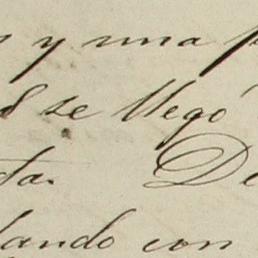 y una
se llegó
ta. De
ando con